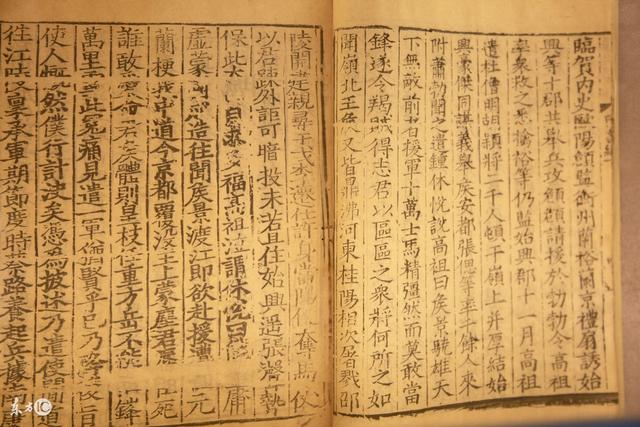 臨賀內史歐陽頠監衡州蘭裕蘭京禮扇誘始
興等十郡共舉兵攻頠頠請援於勃勃令高祖
率衆救之悉擒裕等仍監始興郡十一月高祖
遣杜僧明胡穎將二千人頓于嶺上并厚結始
興豪傑同謀義舉侯安都張偲等率千餘人來
附蕭勃聞之遣鍾休悅說高祖曰侯景驍雄天
下無敵前者援軍十萬士馬精彊然而莫敢當
鋒遂令羯賊得志君以區區之衆將何所之如
聞嶺北王侯又皆鼎沸河東桂陽相次屠戮邵
陵開建親尋干戈李遷仕許身當陽便奪馬仗
以君疎外詎可暗投未若且住始興遥張聲勢
保此太山自求多福高祖泣謂休悅曰庸
虛蒙國成造往聞侯景渡江即欲赴援遭元
蘭梗我中道今京都覆沒主上蒙塵君辱臣死
誰敢愛命君侯體則皇枝任重方岳不能鋒
萬里雪此冤痛見遣一軍猶賢乎已乃旨
使人慨然僕行計決矣憑為披述乃遣使間道
往江陵稟承軍期節度時蔡路養起兵據南
东方IC